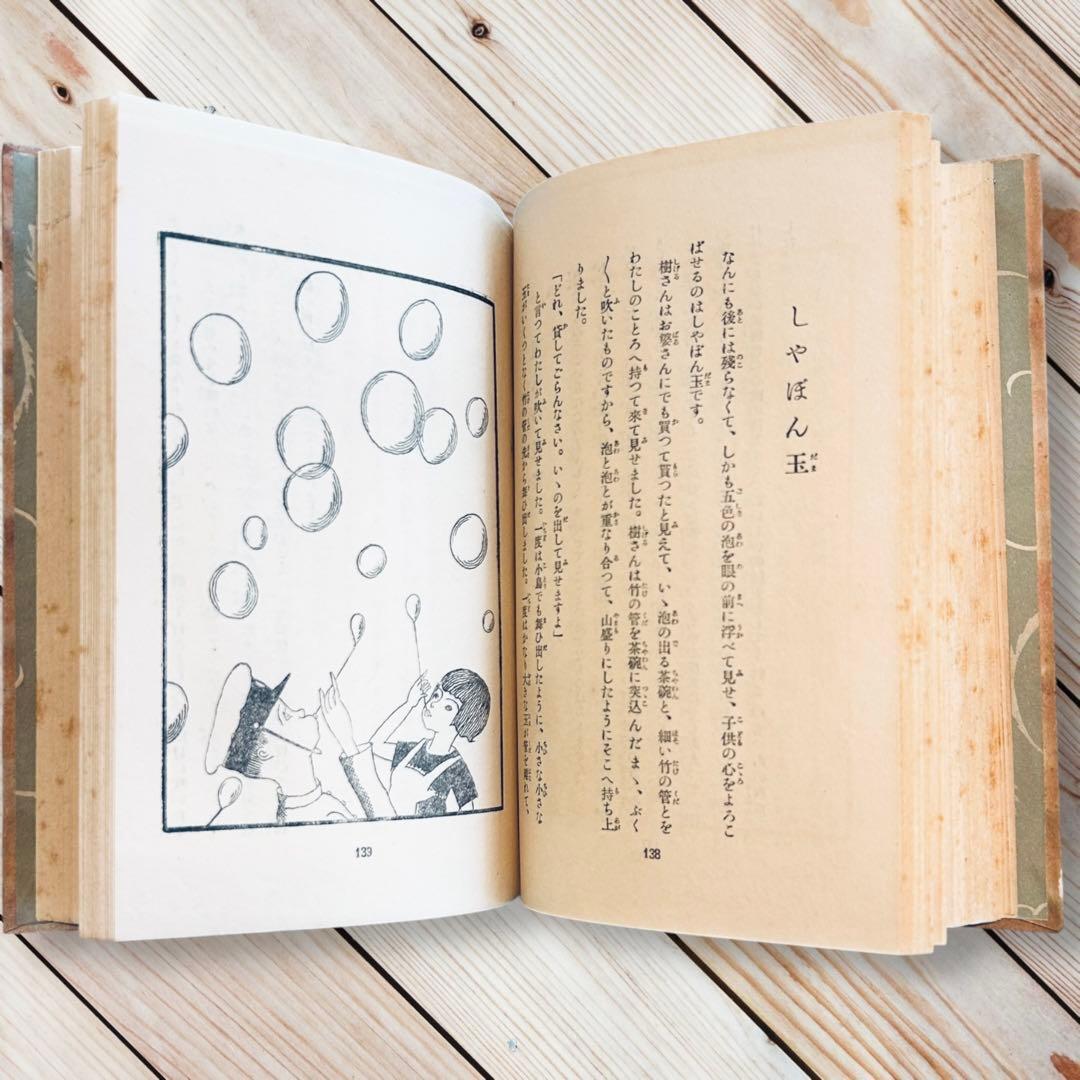 しやぼん玉
なんにも後には残らなくて、しかも五色の泡を眼の前に浮べて見せ、子供の心をよろこ
ばせるのはしやぼん玉です。
樹さんはお婆さんにでも買つて貰つたと見えて、いゝ泡の出る茶碗と、細い竹の管とを
わたしのところへ持つて來て見せました。樹さんは竹の管を茶碗に突込んだまゝ、ぶく
〳〵と吹いたものですから、泡と泡とが重なり合つて、山盛りにしたようにそこへ持ち上
りました。
「どれ、貸してごらんなさい。いゝのを出して見せますよ」
と言つてわたしが吹いて見せました。一度は小鳥でも舞ひ出したように、小さな小さな
玉がいくつとなく竹の管の先から舞ひ出しました。一度はかなり大きな玉が管を離れて、
138
139